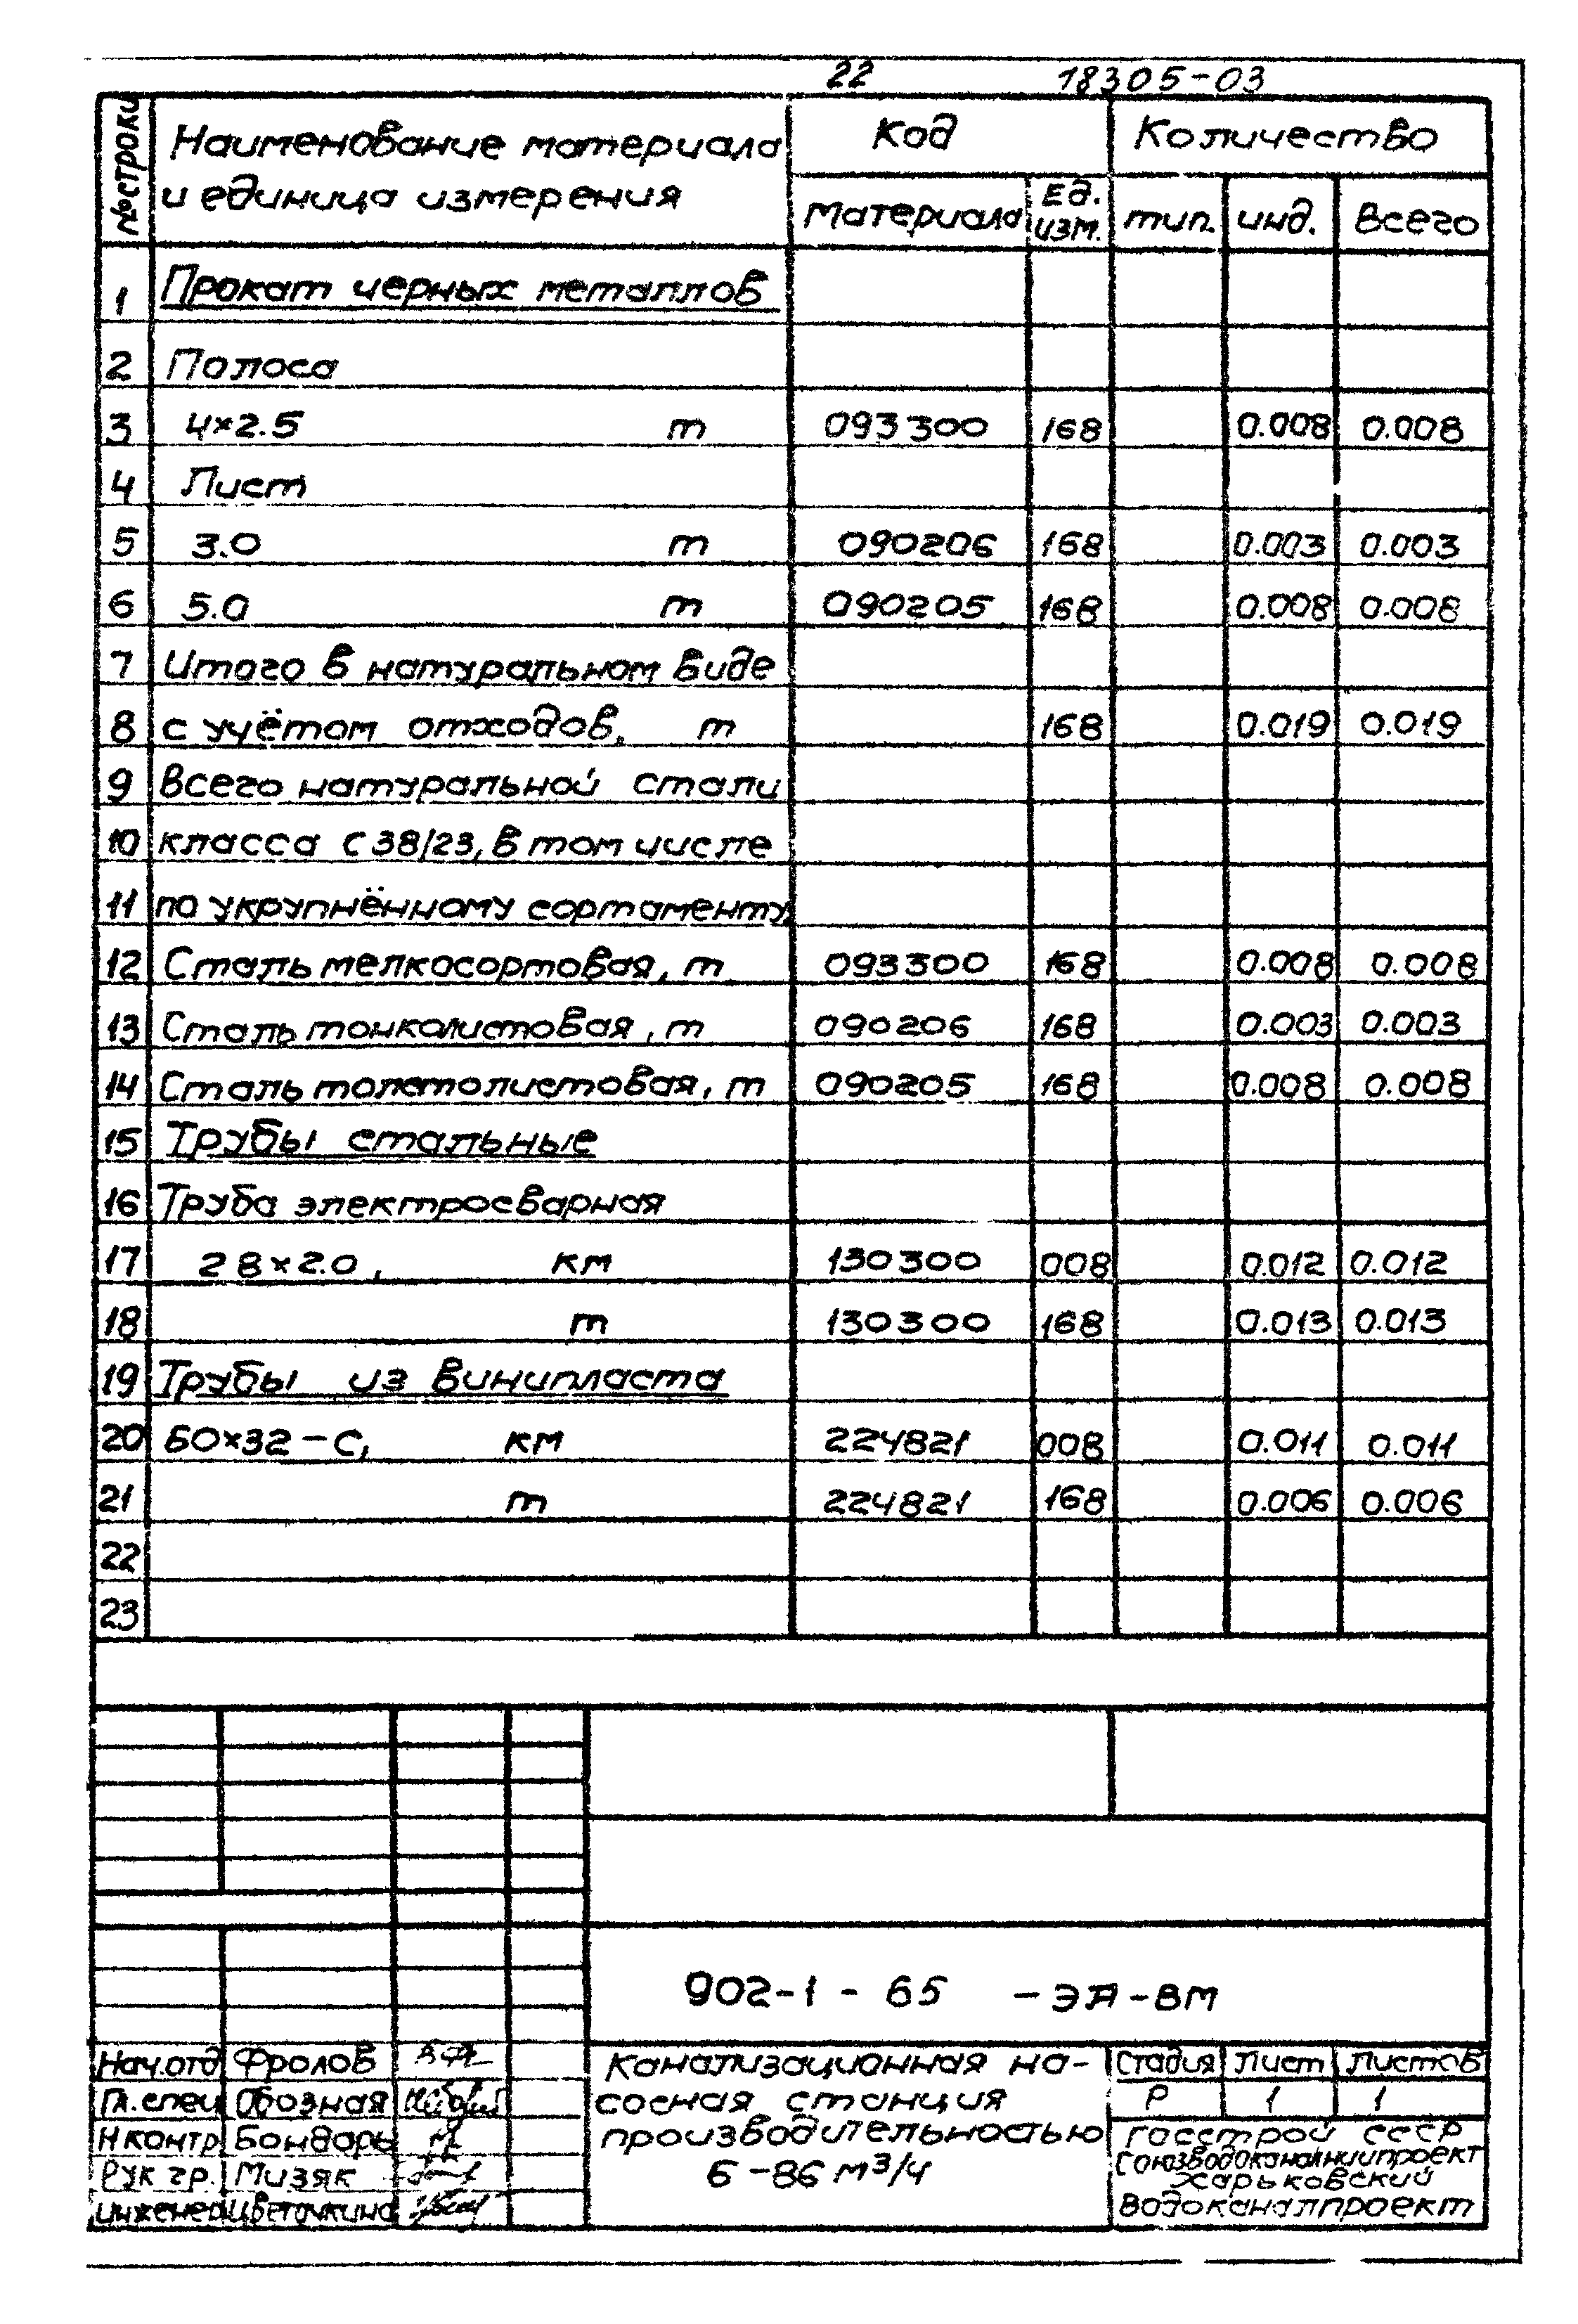 22 18305-03
№ строки Наименование материала и единица измерения Код Количество
материала Ед. изм. тип. инд. Всего
1 Прокат черных металлов
2 Полоса
3 4×2.5 т 093300 168 0.008 0.008
4 Лист
5 3.0 т 090206 168 0.003 0.003
6 5.0 т 090205 168 0.008 0.008
7 Итого в натуральном виде
8 с учётом отходов, т 168 0.019 0.019
9 Всего натуральной стали
10 класса С38/23, в том числе
11 по укрупнённому сортаменту
12 Сталь мелкосортовая, т 093300 168 0.008 0.008
13 Сталь тонколистовая, т 090206 168 0.003 0.003
14 Сталь толстолистовая, т 090205 168 0.008 0.008
15 Трубы стальные
16 Труба электросварная
17 28×2.0, км 130300 008 0.012 0.012
18 т 130300 168 0.013 0.013
19 Трубы из винипласта
20 БО×32-С, км 224821 008 0.011 0.011
21 т 224821 168 0.006 0.006
22
23
902-1-65 -ЭА-ВМ
Нач.отд Фролов
Гл.спец Обозная
Н контр Бондарь
Рук гр. Мизяк
инженер Цветочкина
Канализационная на-
сосная станция
производительностью
6-86 м³/ч
Стадия Лист Листов
Р 1 1
Госстрой СССР
Союзводоканалниипроект
Харьковский
Водоканалпроект